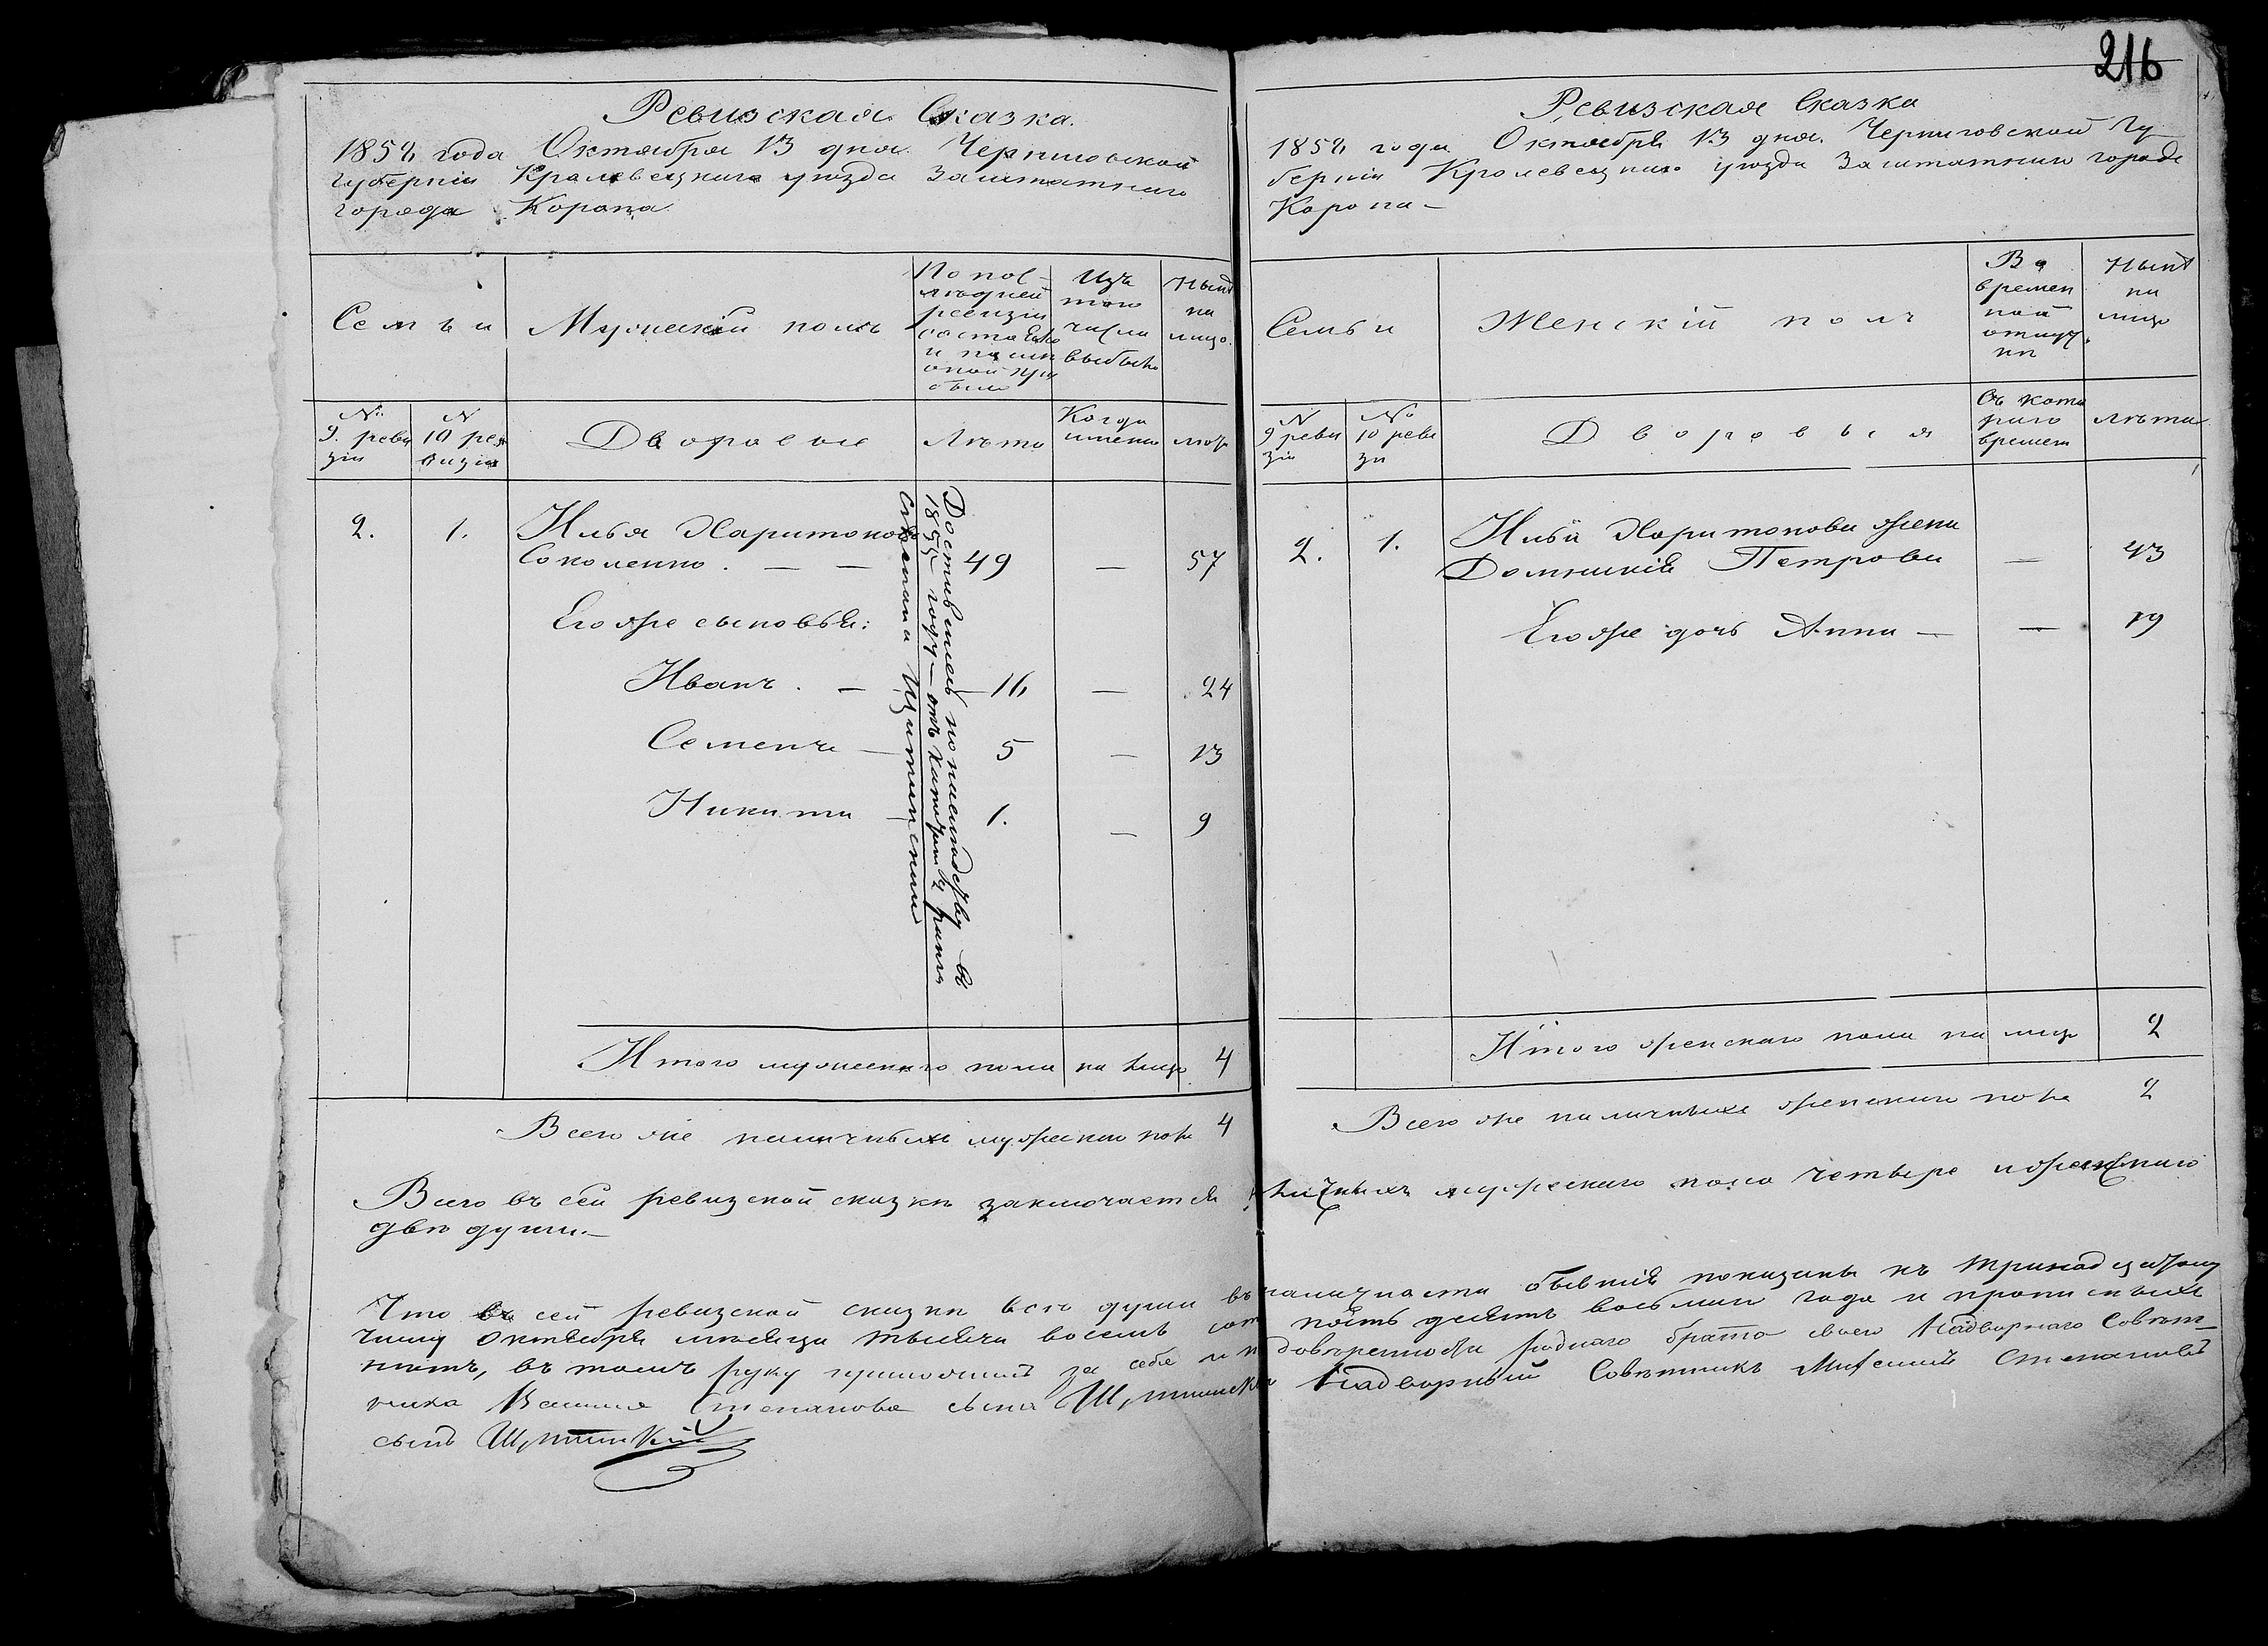 216
Ревизская Сказка.
1858 года Октября 13 дня. Черниговской
Губерніи Кролевецкаго уѣзда Заштатнаго
города Коропа
Семьи
Мужескій полъ
По пос-
лѣдней
ревизіи
состояло
и послѣ
оной при
было
Изъ
того
числа
выбыло
Нынѣ
на
лицо.
№
9. реви
зіи
№
10 ре
визіи
Дворовые
Лѣта
Когда
именно
лѣта
2.
1.
Илья Харитоновъ
Соколенко. — — 49 — 57
Его же сыновья:
Иванъ. — — 16 — 24
Семенъ — 5 — 13
Никита — 1. — 9
Достались по наслѣдству въ
1855 году — отъ Колл. Ас.
Степана Щитинскаго
Итого мужескаго пола на лицо 4
Всего же наличныхъ мужеска пола 4
Ревизская Сказка
1858 года Октября 13 дня. Черниговской Гу
берніи Кролевецкаго уѣзда Заштатнаго города
Коропа —
Семьи
Женскій полъ
Во
времен
ной
отлуч
кѣ
Нынѣ
на
лицо
№
9 реви
зіи
№
10 реви
зіи
Дворовыя
Съ кото
раго
времени
Лѣта
2. 1. Ильи Харитонова жена
Домникія Петрова — 43
Его же дочь Анна — — 19
Итого женскаго пола на лицо 2
Всего же наличныхъ женскаго пола 2
Всего въ сей ревизской сказкѣ заключается наличныхъ мужескаго пола четыре и женскаго
двѣ души. —
Что въ сей ревизской сказки всѣ души въ наличности бывшія показаны къ тринадцатому
числу Октября мѣсяца тысяча восемь сотъ пять десятъ восьмаго года и прописныхъ
нѣтъ, въ томъ руку приложилъ за себя и по довѣренности роднаго брата своего Надворнаго Совѣт-
ника Василія Степанова сына Щитинскаго Надворный Совѣтникъ Степановъ
сынъ Щитинскій